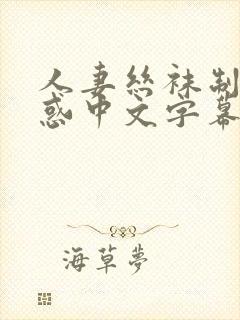 人妻絲袜制
惑中文字幕
海草夢